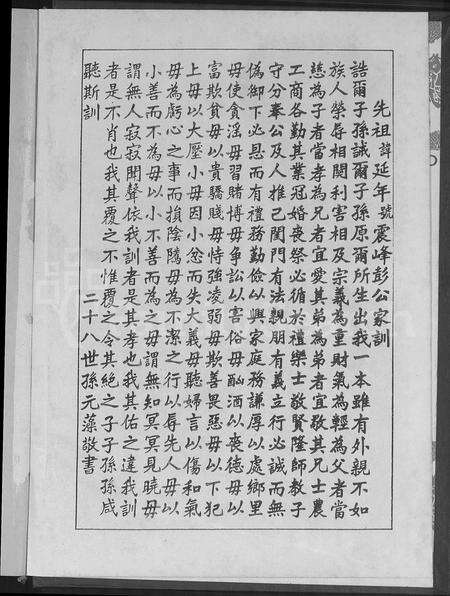 先祖諱延年號震峰彭公家訓
誥爾子孫誡爾子孫原爾所生出我一本雖有外親不如
族人榮辱相關利害相及宗義為重財氣為輕為父者當
慈為子者當孝為兄者宜愛其弟為弟者宜敬其兄士農
工商各勤其業冠婚喪祭必循於禮樂士敬賢隆師教子
守分奉公及人推己閨門有法親朋有義立行必誠而無
偽御下必恩而有禮務勤儉以興家庭務謙厚以處鄉里
毋使貪淫毋習賭博毋爭訟以害俗毋酗酒以喪德毋以
富欺貧毋以貴驕賤毋恃強凌弱毋欺善畏惡毋以下犯
上毋以大壓小毋因小忿而失大義毋聽婦言以傷和氣
毋為虧心之事而損陰騭毋為不潔之行以辱先人毋以
小善而不為毋以小不善而為之毋謂無知冥冥見曉毋
謂無人寂寂聞聲依我訓者是其孝也我其佑之違我訓
者是不肖也我其覆之不惟覆之令其絕之子子孫孫咸
聽斯訓
二十八世孫元藻敬書